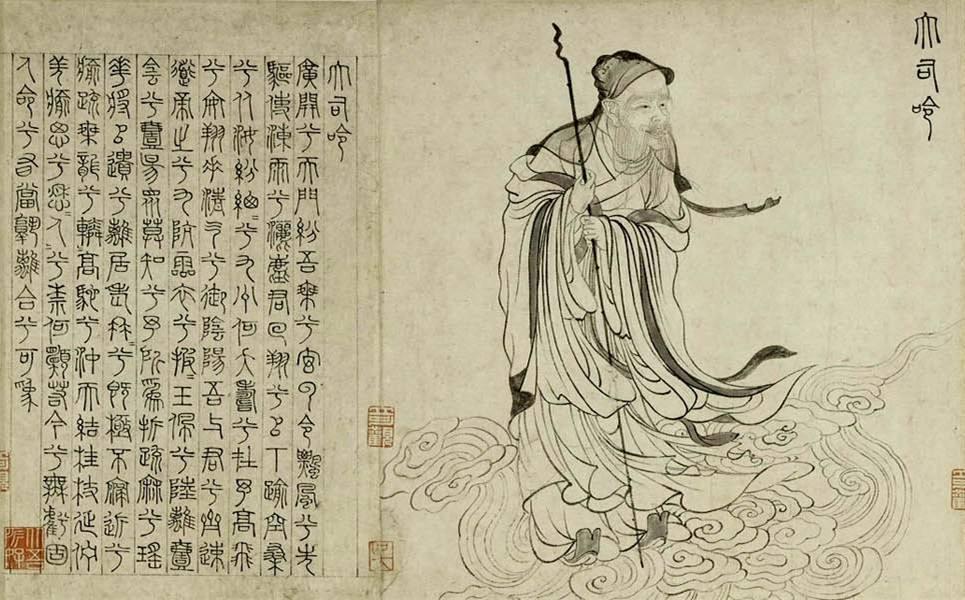 大司命
大司命
廣開兮天門紛吾乘兮玄云令飄風兮先
驅使涷雨兮灑塵君回翔兮㠯下踰空桑
兮從女紛緫=兮九州何夭壽兮在予高飛
兮安翔乘清气兮御陰陽吾与君兮齊速
導帝之兮九阬靈衣兮披=玉佩兮陸離壹
侌兮壹昜眾莫知兮予所爲折疏麻兮瑤
華將㠯遺兮離居老冉=兮既極不寖近兮
愈疏乘龍兮轔=高馳兮沖天結桂枝延佇
羌愈思兮愁=人兮奈何願若今兮無虧固
人命兮有當孰離合兮可爲